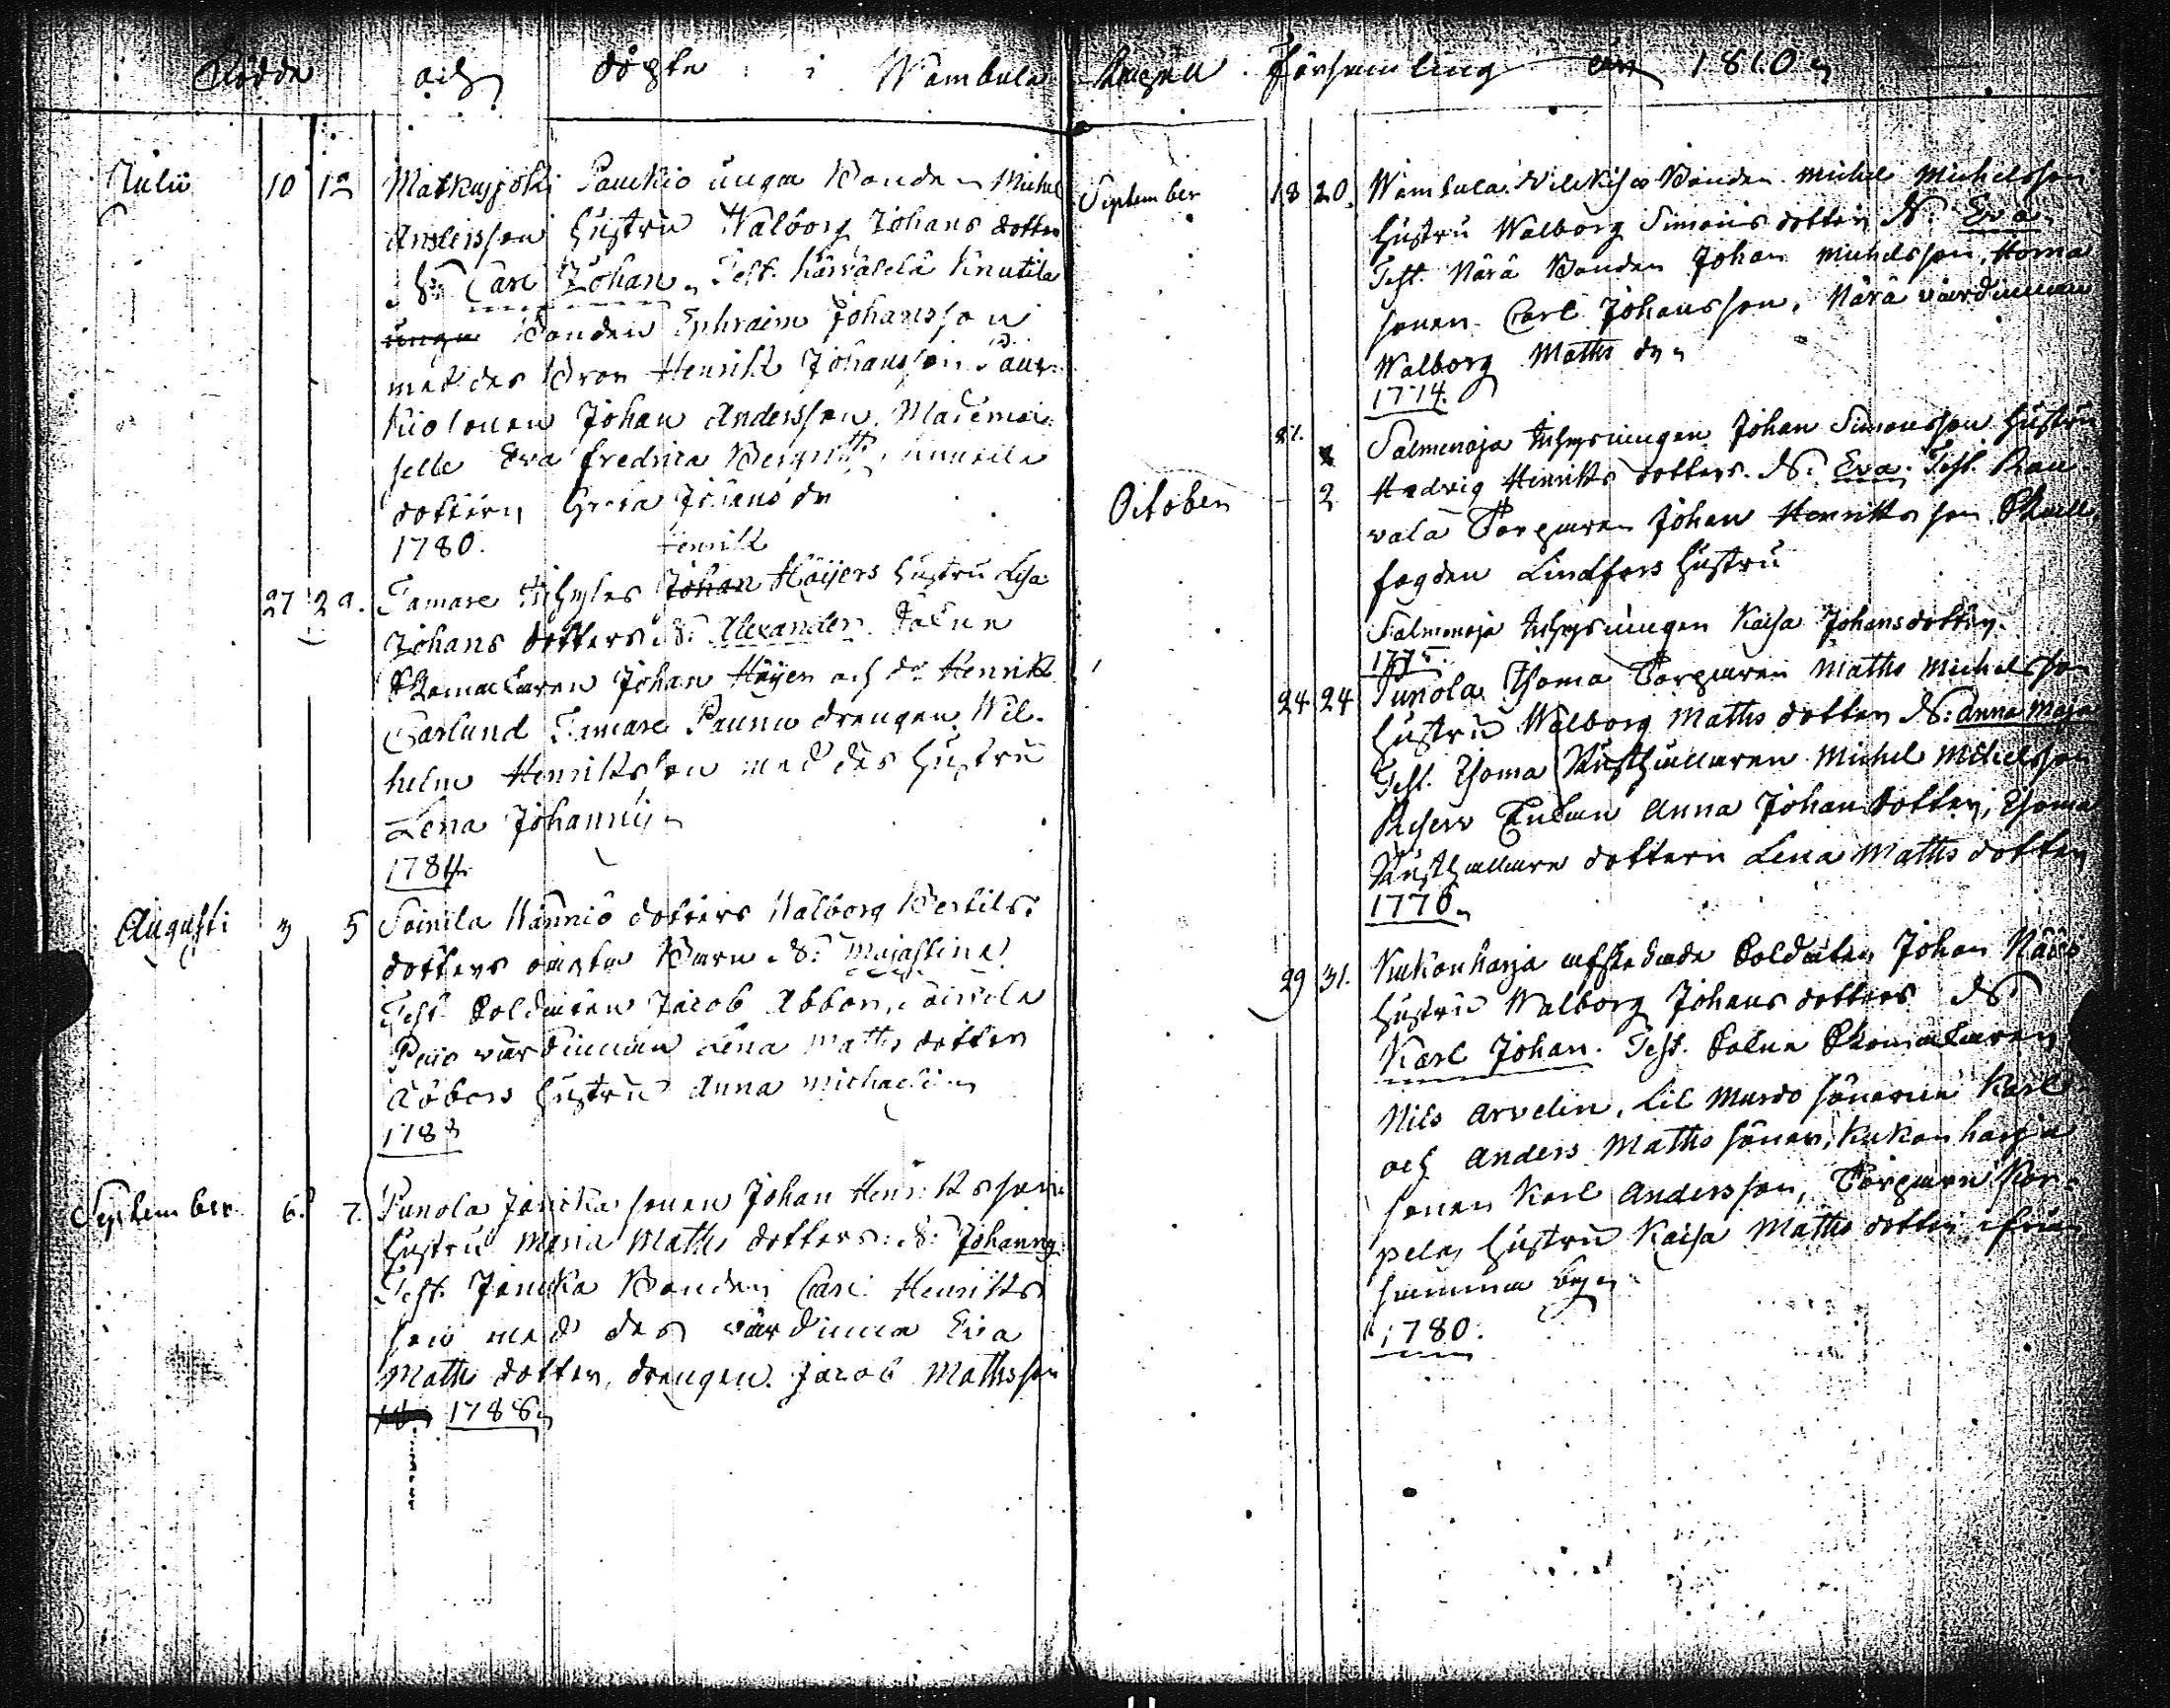 Födde och döpte i Wambula Capell Församling år 1810
Julii 10 12 Matkusjoki Paukio unga Bonden Michel
Andersson hustru Walborg Johans dotter
N: Carl Johan. Test. Kärväselä Knutila
unga Bonden Ephraim Johansson
med des Bror Henrik Johansson Pau-
kio sonen Johan Andersson. Mademoi-
selle Eva Fredrica Bergroth, Knutila
dottern Greta Johans dr
1780. Henrik
27 29. Tamare Inhyses Johan Höijers hustru Lisa
Johans dotters N: Alexander.
Skomakaren Johan Höijer och do Henrik
Carlund Tamare Paunu drengen Wil-
helm Henriksson med des hustru
Lena Johannis
1784.
Augusti 3 5 Soinila Hannio dotters Walborg Bertils
dotters oägta Barn N: Majastina
Test. Soldaten Jacob Abbor, Soinila
värdinnan Lena Maths dotter
Abbors hustru Anna Michaeli
1783
September 6. 7. Punola Jencka sonen Johan Henriksson
hustru Maria Maths dotters: N: Johanna
Test. Jencka Bonden Carl Henriks
son med des värdinna Eva
Maths dotter, drengen Jacob Mathsson
1788
September 18 20. Wambula Bonden Michel Michelsson
hustru Walborg Simons dotter N: Eva
Test. Närä Bonden Johan Michelsson, Homa
sonen Carl Johansson, Närä värdinnan
Walborg Maths dr
1774.
Salmenoja Inhysningen Johan Simonsson hustru
October 2 Hedvig Henriks dotters. N: Eva. Test. Kau
vala Torparen Johan Henriksson Skall
fogden Lindfors hustru
Salmenoja Inhysningen Kaisa Johansdotter
1775.
24 24 Punola Thoma Torparen Maths Michelsson
hustru Walborg Maths dotter N: Anna Maja
Test. Thoma Rusthållaren Michel Michelsson
Reserv Enkan Anna Johans dotter, Thoma
Rusthållare dottern Lena Maths dotter
1776
29 31. Kukonharja afskedade Soldaten Johan
hustru Walborg Johans dotters N:
Karl Johan. Test. Skomakaren
Nils Arvelin, Lill Murdo sönerne Karl
och Anders Maths söner, Kukonharja
sonen Karl Andersson, Torparen Kor-
pela hustru Kaisa Maths dotter ifrån
samma by
1780.